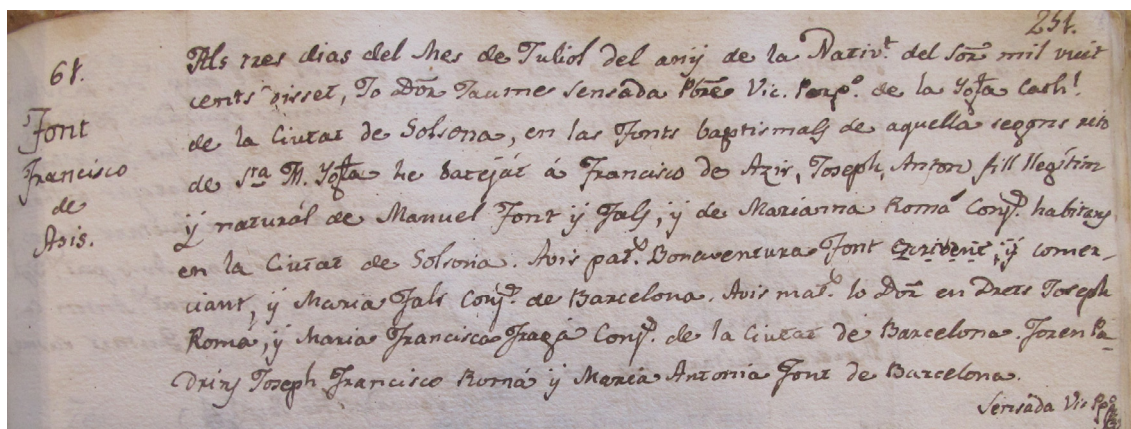 251.
61.
Font
Francisco
de
Asis.
Als tres dias del Mes de Juliol del any de la Nativ.t del Sōr mil vuit
cents disset, Jo Dōr Jaume Sensada Pbre Vic. Perp.o de la Ygła Cath.l
de la Ciutat de Solsona, en las Fonts baptismals de aquella segons rito
de Sta M. Ygła he batejat á Francisco de Azis, Joseph, Anton fill llegitim
y natural de Manuel Font y Fals, y de Marianna Romá Conj.s habitans
en la Ciutat de Solsona. Avis pat.s Bonaventura Font escribent, y comer-
ciant, y Maria Fals Conj.s de Barcelona. Avis mat.s lo Dōr en Drets Joseph
Romá, y Maria Francisca Fragá Conj.s de la Ciutat de Barcelona. Foren Pa-
drins Joseph Francisco Romá y Maria Antonia Font de Barcelona.
Sensada Vic. Pp.o